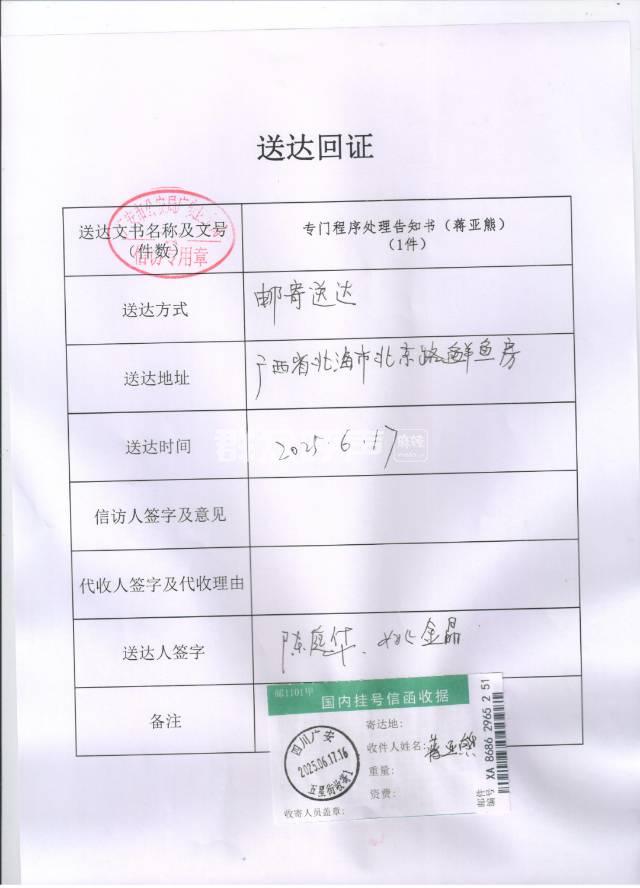 送达回证
送达文书名称及文号
(件数)
专门程序处理告知书(蒋亚熊)
(1件)
信访专用章
送达方式
邮寄送达
送达地址
广西省北海市北京路鲜鱼房
送达时间
2025.6.17
信访人签字及意见
代收人签字及代收理由
送达人签字
陈庭华、姚金晶
备注
邮1101甲
国内挂号信函收据
寄达地:
收件人姓名:蒋亚熊
重量:
资费:
收寄人员盖章:
四川广安
2025.06.17.16
五星街收寄1
邮件
编号
XA 8686 2965 2 51